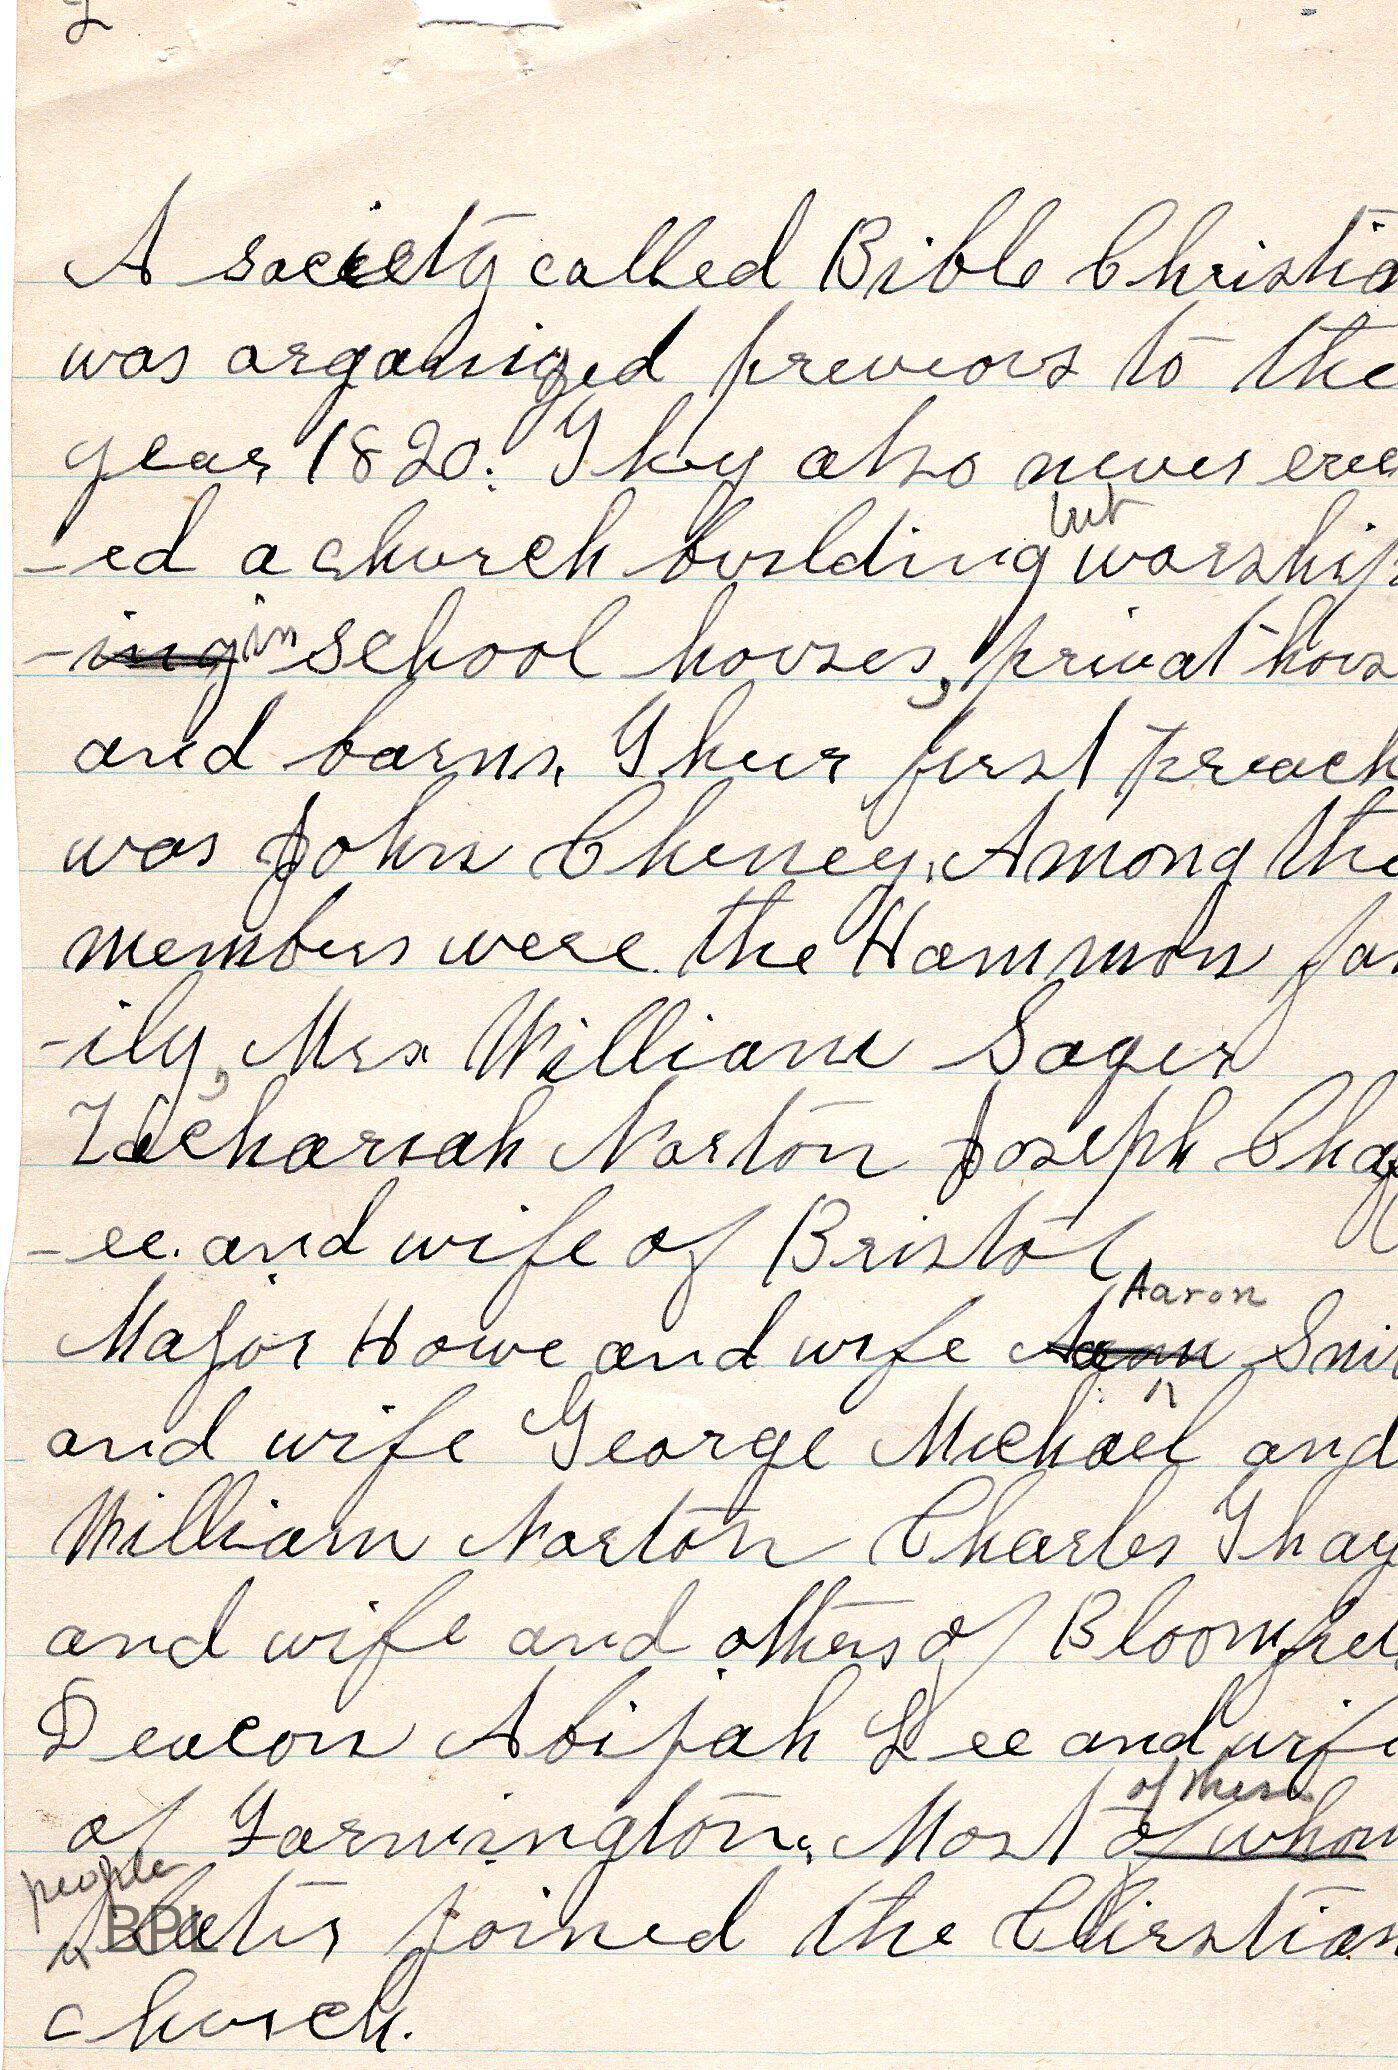 2
A society called Bible Christia
was organized previous to the
year 1820. They also never erec
-ed a church building but worship
-ing in school houses, privat hous
and barns. Their first preach
was John Cheney. Among the
members were the Hammon fam
-ily, Mrs William Sager
Zachariah Norton Joseph Chaf
-ee and wife of Bristol
Major Howe and wife Aaron Smi
and wife George Michael and
William Norton Charles Thay
and wife and others of Bloomfiel
Deacon Abijah Lee and wife
of Farmington. Most of whom of these
people later joined the Christian
church.
BPL